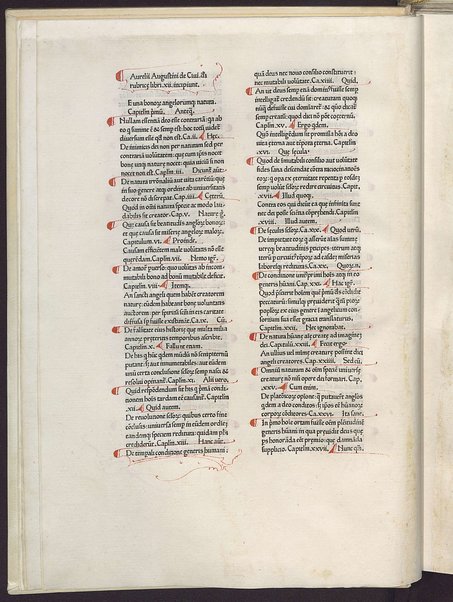 Aurelii Augustini de Ciui. dī
rubrice libri .xii. incipiunt.
E una bonoȝ angelorumq; natura.
Capitulm pimū. Anteq̄
Nullam essentiā deo esse contrariā: q̄a ab
eo q̄ summe ē & semp est: hoc totū uideȝ
diuersum esse q̄d non est. Ca.ii. Hec
De inimicis dei non per naturam sed per
contrariā uoluntatem: que cum ip̄is nocet
bone utiq; nature nocet: quia uiciū si non
nocet non est. Caplm .iii. Dicunt aūt
De natura irronaliū aut uita carētiū: que
in suo genere atq; ordine ab uniuersitatis
decore nō discrepat. Cap.iiii. Ceterū
Quod in oīni natura specie ac modo lau
dabilis sit creator. Cap.v. Nature
Que causa sit beatitudis angeloȝ bonoȝ: et
que causa sit miserie angeloȝ maloȝ.
Capitulum .vi. Proinde.
Causam efficiētem male uoluntatis nō esse
querēdam. Caplm .vii. Nemo igr̄.
De amore puerso: quo uoluntas ab incom
mutabili bono ad bonū mutabile deficit.
Caplm .viii. Itemq;
An sancti angeli quem habēt creatorem
nature: eūdem habeant bone uoluntatis
auctorem per sp̄mm sc̄m in eis caritate
diffusa. Ca.ix. Cū
De falsitate eius historie: que multa milia
annoȝ preteritis temporibus ascribit.
Caplm .x. Fallunt enim.
De his q̄ hūc q̄dem mūdū nō sempiternū
putant: sed aut innumerabiles: aut eūdem
unū certa conclusione seclorȝ semp nasci &
resolui opinant̄. Caplm .xi. Alii uero.
Quid respōdendum sit his q̄ p̄mā condi
tionem hois tardam eē causant̄. Caplm
.xii. Quid autem.
De reuolutione secloȝ: quibus certo fine
cōclusis: uniuersa semp in eūdem ordinē
eandemq; speciem reditura: quidam phī
crediderūt. Caplm .xiii. Hanc aūt.
De tempali conditione generis humani:
quā deus nec nouo consilio constituerit:
nec mutabili uoluntate. Ca.xiiii. Quid.
An ut deus semp etiā domin̄ fuisse semp
intelligat̄ credendū sit creaturam quoq;
nūq̄ defuisse cui dominaret̄: et quō dicat̄
semp creatū: quod dici nō pōt coeternū.
Caplm .xv. Ergo q̄dem.
Quō intelligēdum sit promissa hoi a deo
uita eterna ante tēpora eterna. Caplm
.xvi. Que secula.
Quod de īmutabili consilio aut uolūtate
fides sana defendat cōtra rōcinatōes
eoȝ: q̄ opa dei ex eternitate repetita p eosdeȝ
semp uolūt secloȝ redire circuitus. Capit.
.xvii. Illud quoq;
Contra eos qui dicūt ea que infinita sunt
nec dei posse scientia cōprehendi. Caplm
.xviii. Illud autem.
De seculis secloȝ. Ca.xix. Quod utrū.
De impietate eoȝ q̄ asserūt aīas summe
uereq; beatitudinis prticipes: iterum atq;
iterū p circuitus tēpoȝ ad easdē miserias
laboresq; redituras. Ca.xx. Quoȝ.
De conditione unius primi hois atq; in eo
generis hūani. Cap. .xxi. Hac igr̄.
Quod presciuerit deus hoiem quē p̄mū cōdidit
peccaturū: simulq; preuiderit quātū pioȝ
populū ex eius genere ī angelicum con
sortium sua esset gratia translaturus.
Caplm .xxii. Nec ignorabat.
De natura hūane aīe create ad imaginem
dei. Capitulū .xxiii. Fecit ergo.
An ullius uel minime creature possint dici
angeli creatores. Cap.xxiiii. Sed cū.
Omniū naturam & oēm speciē uniuerse
creature nō nisi opere dei formari. Cap.
.xxv. Cum enim.
De platōicoȝ opione: q̄ putauerūt anglos
q̄dem a deo conditos: sȝ ip̄os eē hūanoȝ
corpoȝ cōditores. Ca.xxvi. Ita sane.
In p̄mo hoie ortam fuisse oēm plenitudinē
generis hūani in qua preuidit deus que
ps honorāda esset premio: que damnāda
supplicio. Caplm .xxvii. Nunc q̄m.